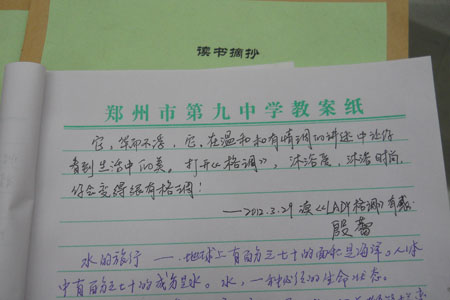 读书摘抄
郑州市第九中学教案纸
它,华而不浮,它,在温和和有情调的讲述中让你
看到生活中的美。打开《格调》,沐浴质,沐浴时尚,
你会变得很有格调!
——2012.3.29读《LADY格调》有感
殷蕾
水的旅行——地球上有百分之七十的面积是海洋。人体
中有百分之七十的成分是水。水,一种秘径的生命状态。